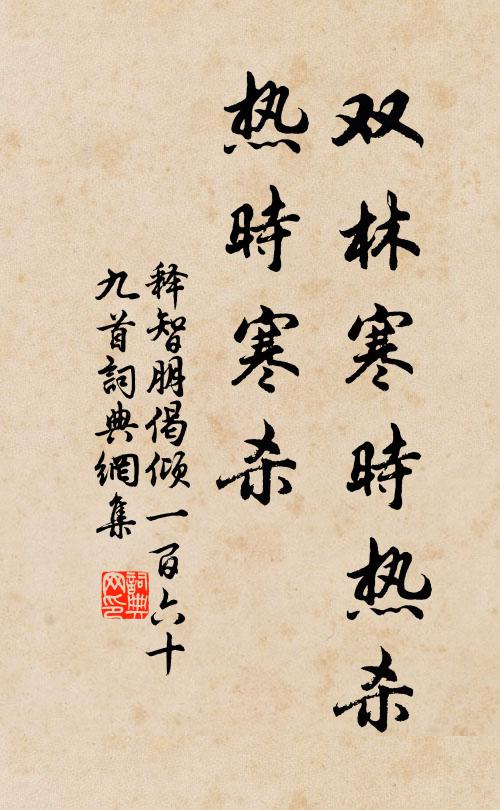 双林寒時热杀
热時寒杀
释智朋偈倾一百六十
九首詞典網集
詞典
网印